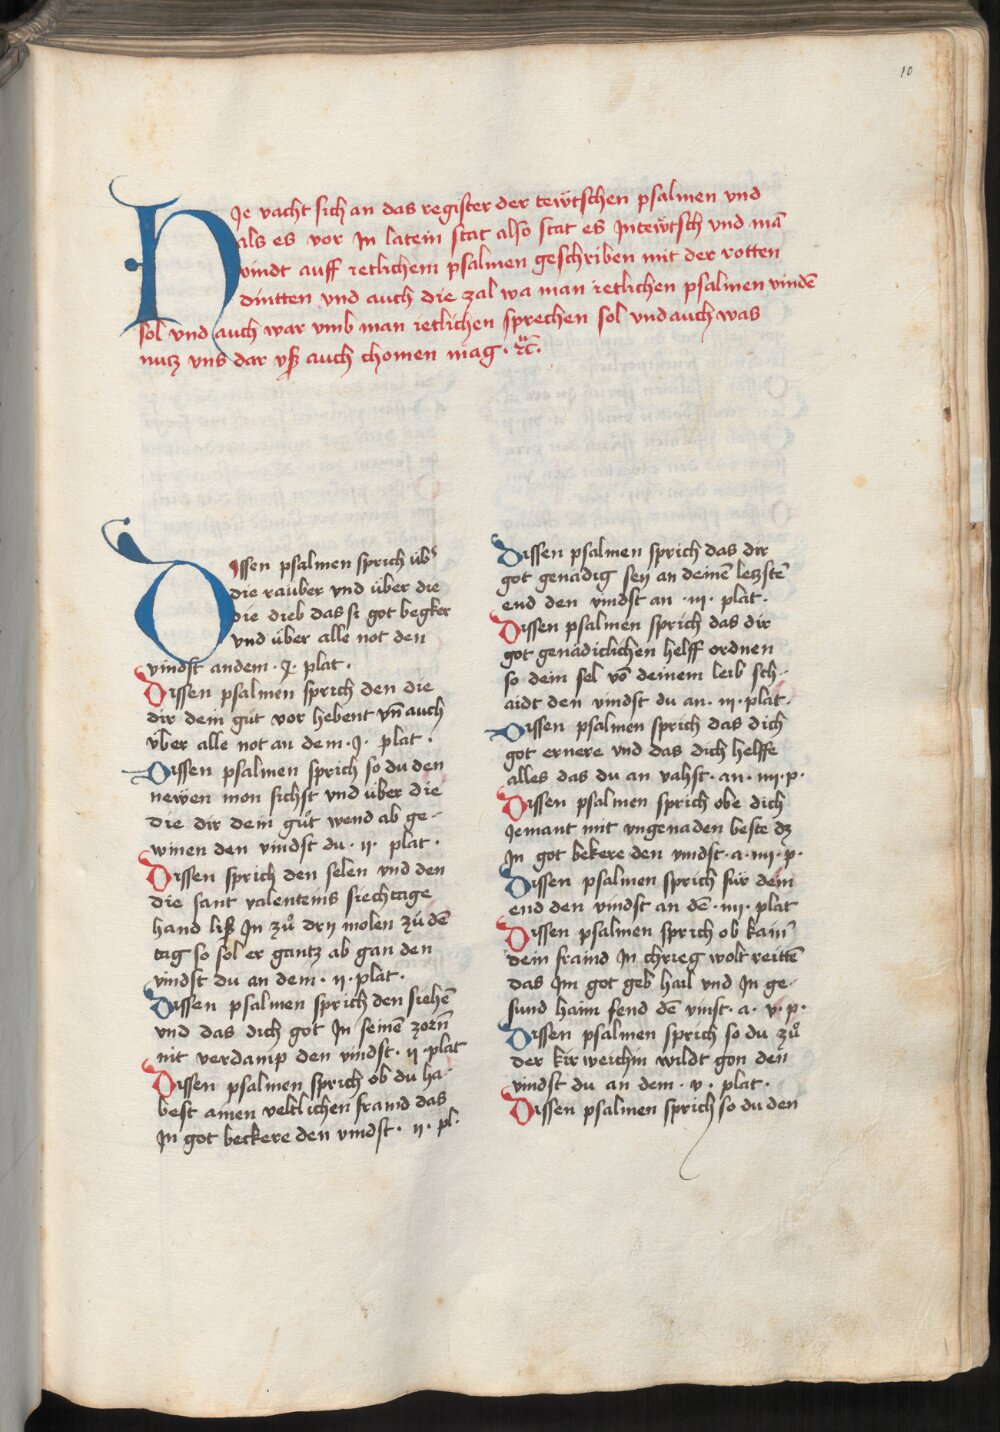 10
HJe vacht sich an das register der tewtschen psalmen vnd
als es vor Jn latein stat also stat es Jntewtsch vnd mā
vindt auff ietlichem psalmen geschriben mit der rotten
dintten vnd auch die zal wa man ietlichen psalmen vindē
sol vnd auch war vmb man ietlichen sprechen sol vnd auch was
nutz vns dar vß auch chomen mag · ꝛc̄ ·
DJssen psalmen sprich über
die rauber vnd über die
die dieb das si got begker
vnd über alle not den
vindst an dem · J · plat ·
Dissen psalmen sprich den die
dir dein gůt vor hebent vn̄ auch
über alle not an dem · J · plat ·
Dissen psalmen sprich so du den
newen mon sichst vnd über die
die dir dein gůt wend ab ge-
winen den vindst du · ij · plat ·
Dissen sprich den selen vnd den
die sant valenteins siechtage
hand liß Jn zů drij molen zů dē
tag so sol er gantz ab gan den
vindst du an dem · ij · plat ·
Dissen psalmen sprich den siehē
vnd das dich got Jn seinē zorn̄
nit verdamp den vindst · ij · plat
Dissen psalmen sprich ob du ha-
best ainen veltlichen fraind das
Jn got beckere den vindst · ij · pl ·
Dissen psalmen sprich das dir
got genadig seÿ an deinē letzstē
end den vindst an · iij · plat ·
Dissen psalmen sprich das dir
got genadiclichen helff ordnen
so dein sel vō deinem leib sch-
aidt den vindst du an · iij · plat ·
Dissen psalmen sprich das dich
got ernere vnd das dich helffe
alles das du an vahst · an · iiij · p ·
Dissen psalmen sprich obe dich
Jemant mit vngenaden beste dz
Jn got bekere den vindst · a · iiij · p ·
Dissen psalmen sprich für dein
end den vindst an dē · iiij · plat
Dissen psalmen sprich ob kain̄
dein fraind Jn chrieg wolt reittē
das Jm got geb hail vnd Jn ge-
sund haim send dē vinst · a · v · p ·
Dissen psalmen sprich so du zů
der kirweichin wildt gon den
vindst du an dem · v · plat ·
Dissen psalmen sprich so du den